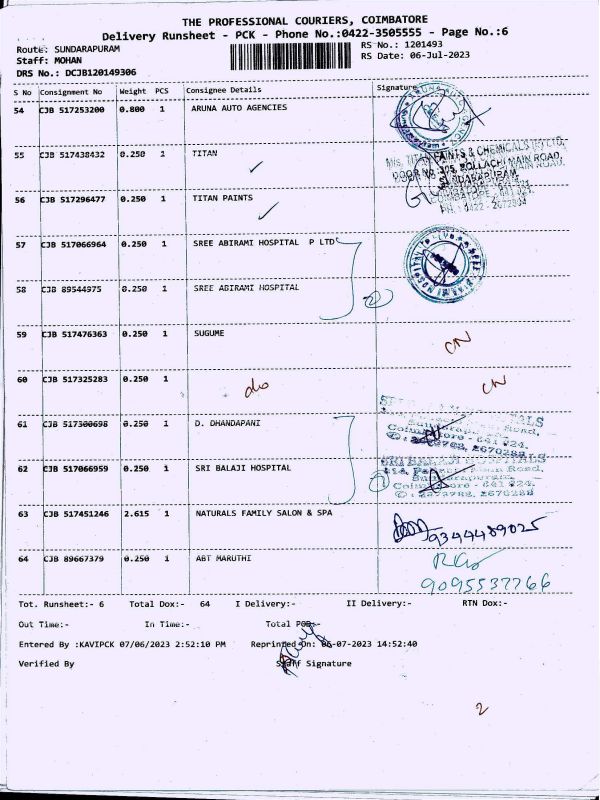 THE PROFESSIONAL COURIERS, COIMBATORE
Delivery Runsheet - PCK - Phone No.:0422-3505555 - Page No.:6
Route: SUNDARAPURAM RS No.: 1201493
Staff: MOHAN RS Date: 06-Jul-2023
DRS No.: DCJB120149306
S No Consignment No Weight PCS Consignee Details Signature
54 CJB 517253200 0.800 1 ARUNA AUTO AGENCIES
55 CJB 517438432 0.250 1 TITAN
M/s. TITAN PAINTS & CHEMICALS (P) LTD,
DOOR NO. 375, POLLACHI MAIN ROAD,
SUNDARAPURAM,
56 CJB 517296477 0.250 1 TITAN PAINTS
57 CJB 517066964 0.250 1 SREE ABIRAMI HOSPITAL P LTD
58 CJB 89544975 0.250 1 SREE ABIRAMI HOSPITAL 2
59 CJB 517476363 0.250 1 SUGUME CN
60 CJB 517325283 0.250 1 do CN
61 CJB 517300698 0.250 1 D. DHANDAPANI
Coimbatore - 641 024.
62 CJB 517066959 0.250 1 SRI BALAJI HOSPITAL
SRI BALAJI HOSPITALS
Sundarapuram,
Coimbatore - 641 024.
63 CJB 517451246 2.615 1 NATURALS FAMILY SALON & SPA 9344489025
64 CJB 89667379 0.250 1 ABT MARUTHI 9095537766
Tot. Runsheet:- 6 Total Dox:- 64 I Delivery:- II Delivery:- RTN Dox:-
Out Time:- In Time:- Total POD:-
Entered By :KAVIPCK 07/06/2023 2:52:10 PM Reprinted On: 06-07-2023 14:52:40
Verified By Staff Signature
2